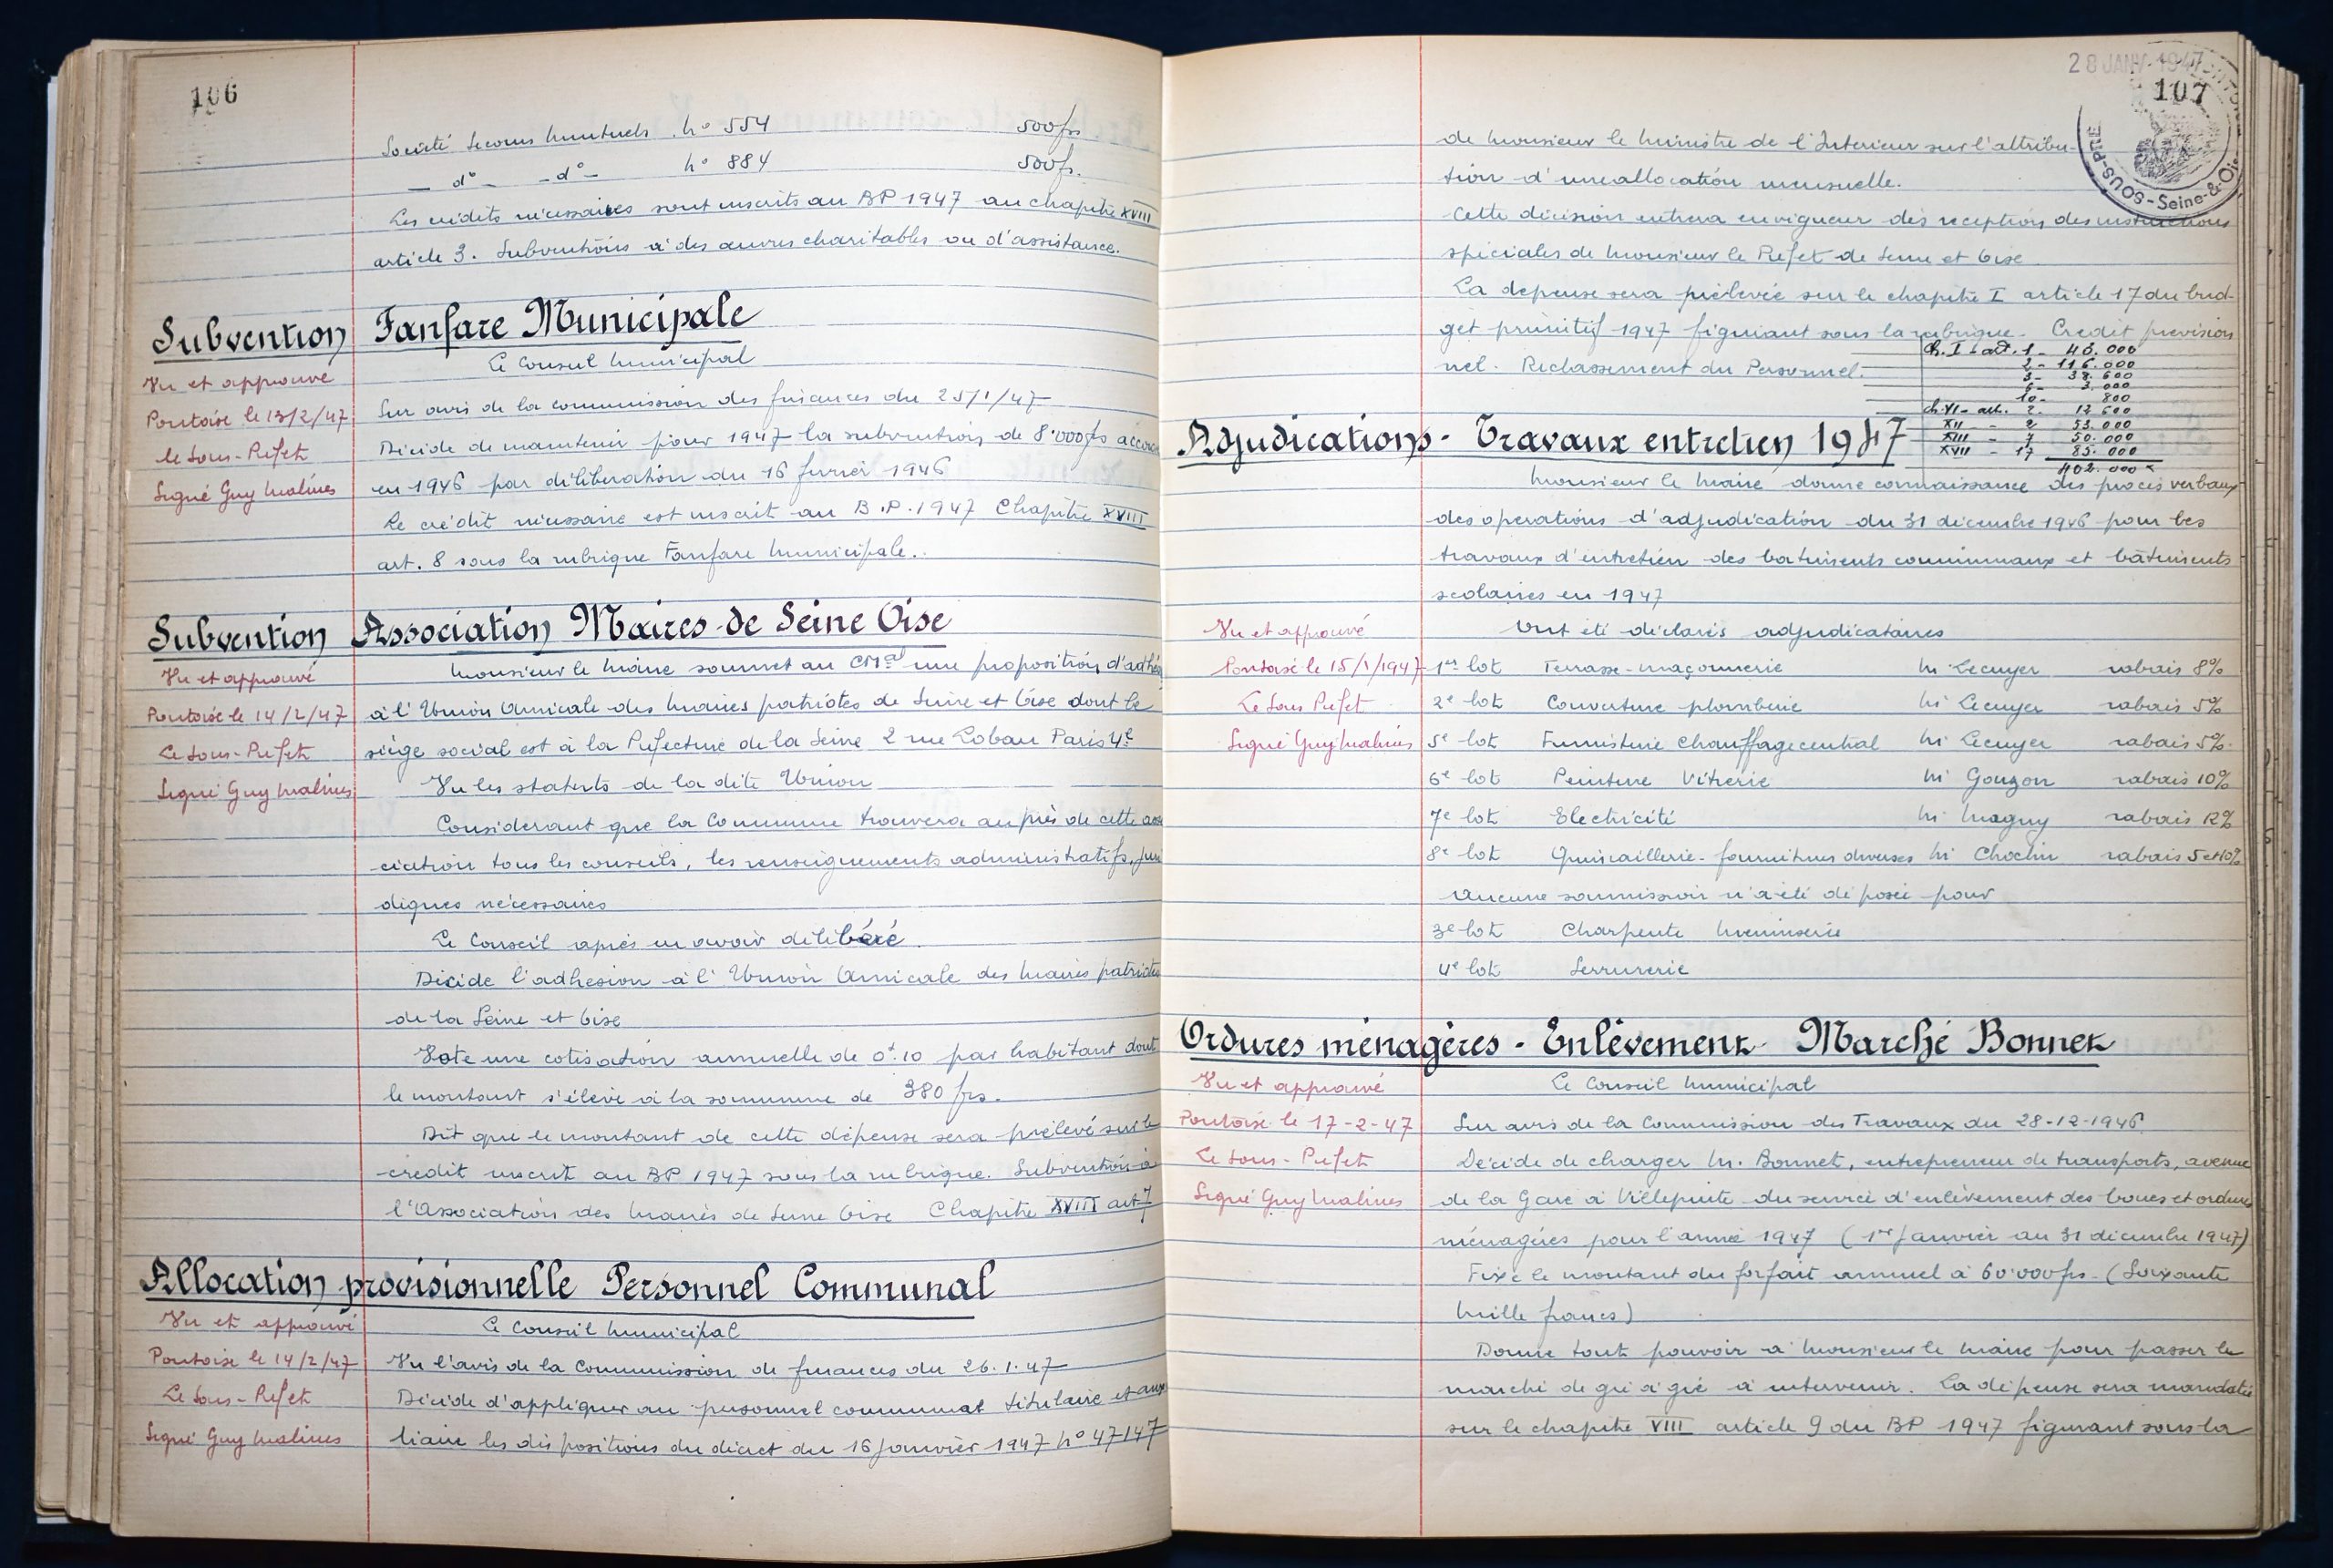 106
Société Secours Mutuels . No 554 500 frs
— do — - do — No 884 500 fs.
Les crédits nécessaires sont inscrits au BP 1947 au chapitre XVIII
article 3. Subventions à des œuvres charitables ou d'assistance.
Subvention Fanfare Municipale
Le Conseil Municipal
Vu et approuvé
Sur avis de la commission des finances du 25/1/47
Pontoise le 13/2/47
Décide de maintenir pour 1947 la subvention de 8.000 frs
le Sous-Préfet
en 1946 par délibération du 16 février 1946
Signé Guy Malines
Le crédit nécessaire est inscrit au B.P. 1947 Chapitre XVIII
art. 8 sous la rubrique Fanfare Municipale.
Subvention Association Maires de Seine Oise
Monsieur le Maire soumet au CMal une proposition d'adhé
Vu et approuvé
Pontoise le 14/2/47
à l'Union Amicale des Maires patriotes de Seine et Oise dont le
Le Sous-Préfet
siège social est à la Préfecture de la Seine 2 rue Lobau Paris 4e
Signé Guy Malines
Vu les statuts de la dite Union
Considérant que la Commune trouvera auprès de cette asso
ciation tous les conseils, les renseignements administratifs, juri
diques nécessaires
Le Conseil après en avoir délibéré.
Décide l'adhésion à l'Union Amicale des Maires patriotes
de la Seine et Oise
Vote une cotisation annuelle de 0f.10 par habitant dont
le montant s'élève à la somme de 380 frs.
Dit que le montant de cette dépense sera prélevé sur le
crédit inscrit au BP 1947 sous la rubrique. Subvention à
l'Association des Maires de Seine Oise Chapitre XVIII art 7
Allocation provisionnelle Personnel Communal
Vu et approuvé
Le Conseil Municipal
Pontoise le 14/2/47
Vu l'avis de la Commission de finances du 26.1.47
Le Sous-Préfet
Décide d'appliquer au personnel communal titulaire et auxi
Signé Guy Malines
liaire les dispositions du décret du 16 janvier 1947 No 47147
28 JANV. 1947
107
SOUS-PRÉ
Seine-&-Oise
de Monsieur le Ministre de l'Intérieur sur l'attribu-
tion d'une allocation mensuelle.
Cette décision entrera en vigueur dès réception des instructions
spéciales de Monsieur le Préfet de Seine et Oise
La dépense sera prélevée sur le chapitre I article 17 du bud-
get primitif 1947 figurant sous la rubrique - Crédit prévision
nel. Reclassement du Personnel.
Ch. I - art. 1 - 40.000
2 - 116.000
3 - 38.600
6 - 3.000
10 - 800
ch. VI - art. 2. 12 600
XII - 2 53.000
XIII - 7 50.000
XVII - 17 85.000
402.000
Adjudications - Travaux entretien 1947
Monsieur le Maire donne connaissance des procès verbaux
des opérations d'adjudication du 31 décembre 1946 pour les
travaux d'entretien des batiments communaux et bâtiments
scolaires en 1947
Vu et approuvé
Ont été déclarés adjudicataires
Pontoise le 15/1/1947
1er lot Terrasse-maçonnerie M. Lecuyer rabais 8%
Le Sous Préfet
2e lot Couverture plomberie M. Lecuyer rabais 5%
Signé Guy Malines
5e lot Fumisterie Chauffage central M. Lecuyer rabais 5%.
6e lot Peinture Vitrerie M. Gouzon rabais 10%
7e lot Electricité M. Magny rabais 12%
8e lot Quincaillerie - fournitures diverses M. Chochin rabais 5 et 10%
Aucune soumission n'a été déposée pour
3e lot Charpente Menuiserie
4e lot Serrurerie
Ordures ménagères - Enlèvement - Marché Bonnet
Vu et approuvé
Le Conseil Municipal
Pontoise le 17-2-47
Sur avis de la Commission des Travaux du 28-12-1946
Le Sous-Préfet
Décide de charger M. Bonnet, entrepreneur de transports, avenue
Signé Guy Malines
de la Gare à Villepinte du service d'enlèvement des boues et ordures
ménagères pour l'année 1947 (1er Janvier au 31 décembre 1947)
Fixe le montant du forfait annuel à 60.000 frs - (Soixante
Mille francs)
Donne tout pouvoir à Monsieur le Maire pour passer le
marché de gré à gré à intervenir. La dépense sera mandatée
sur le chapitre VIII article 9 du BP 1947 figurant sous la